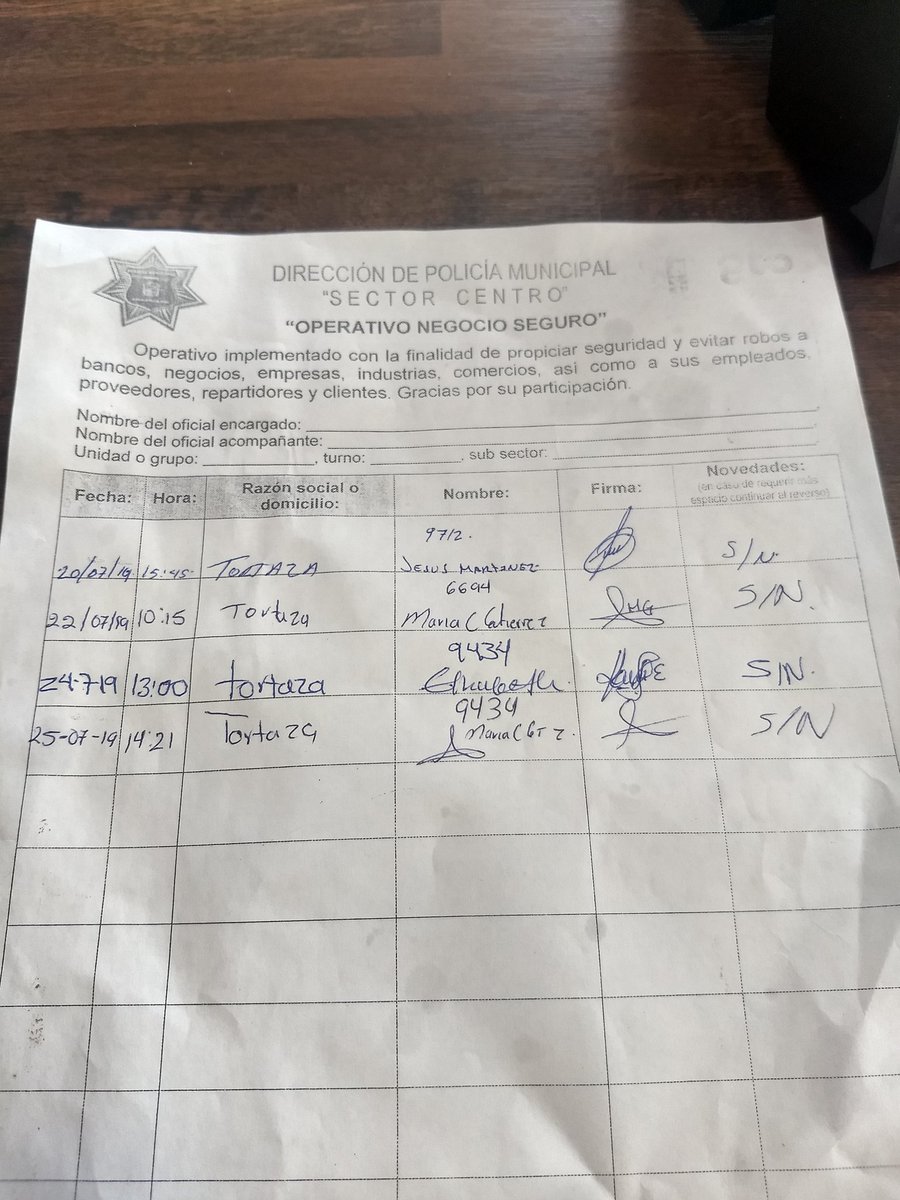 DIRECCIÓN DE POLICÍA MUNICIPAL
"SECTOR CENTRO"
"OPERATIVO NEGOCIO SEGURO"
Operativo implementado con la finalidad de propiciar seguridad y evitar robos a
bancos, negocios, empresas, industrias, comercios, así como a sus empleados,
proveedores, repartidores y clientes. Gracias por su participación.
Nombre del oficial encargado:
Nombre del oficial acompañante:
Unidad o grupo: , turno: , sub sector:
Fecha: Hora: Razón social o domicilio: Nombre: Firma: Novedades: (en caso de requerir más espacio continuar al reverso)
9712.
20/07/19 15:45 TORTAZA JESUS MARTINEZ S/N.
6694
22/07/19 10:15 Tortaza Maria C Gtierrez S/N.
9434
24-7-19 13:00 tortaza S/N.
9434
25-07-19 14:21 Tortaza Maria C Gt Z. S/N